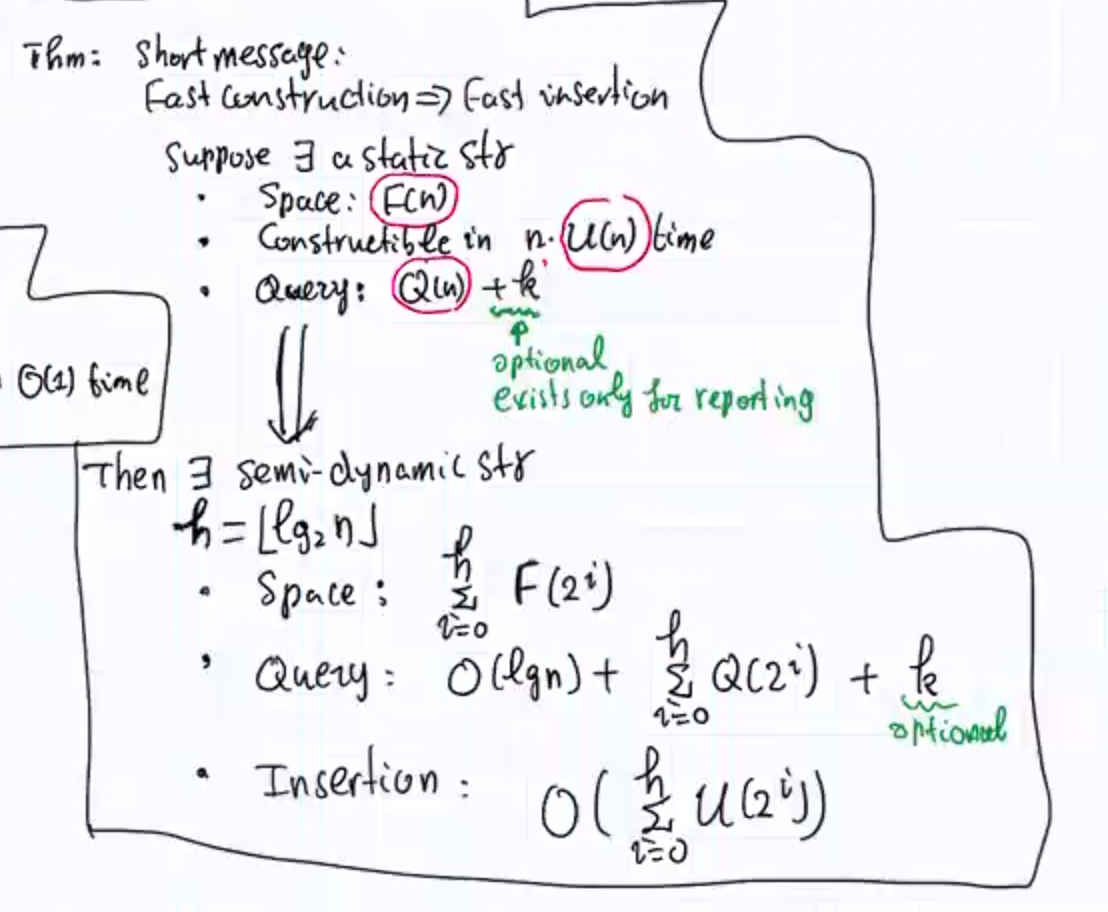 Thm: Short message:
Fast Construction ⇒ Fast insertion
Suppose ∃ a static str
• Space: F(n)
• Constructible in n·U(n) time
• Query: Q(n) + k
optional
exists only for reporting
O(1) time
Then ∃ semi-dynamic str
h = ⌊lg₂ n⌋
• Space: ∑_{i=0}^{h} F(2^i)
• Query: O(lg n) + ∑_{i=0}^{h} Q(2^i) + k
optional
• Insertion: O( ∑_{i=0}^{h} U(2^i))